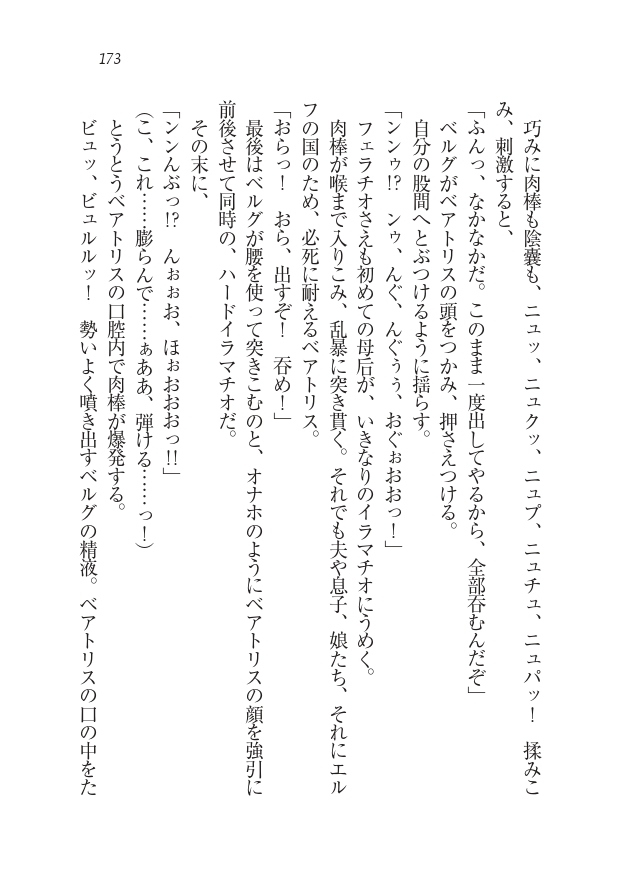 173
巧みに肉棒も陰嚢も、ニュッ、ニュクッ、ニュプ、ニュチュ、ニュパッ！　揉みこ
み、刺激すると、
「ふんっ、なかなかだ。このまま一度出してやるから、全部呑むんだぞ」
ベルグがベアトリスの頭をつかみ、押さえつける。
自分の股間へとぶつけるように揺らす。
「ンンゥ!?　ンゥ、んぐ、んぐぅぅ、おぐぉおおっ！」
フェラチオさえも初めての母后が、いきなりのイラマチオにうめく。
肉棒が喉まで入りこみ、乱暴に突き貫く。それでも夫や息子、娘たち、それにエル
フの国のため、必死に耐えるベアトリス。
「おらっ！　おら、出すぞ！　呑め！」
最後はベルグが腰を使って突きこむのと、オナホのようにベアトリスの顔を強引に
前後させて同時の、ハードイラマチオだ。
その末に、
「ンンんぶっ!?　んぉぉお、ほぉおおおっ!!」
（こ、これ……膨らんで……ぁああ、弾ける……っ！）
とうとうベアトリスの口腔内で肉棒が爆発する。
ビュッ、ビュルルッ！　勢いよく噴き出すベルグの精液。ベアトリスの口の中をた